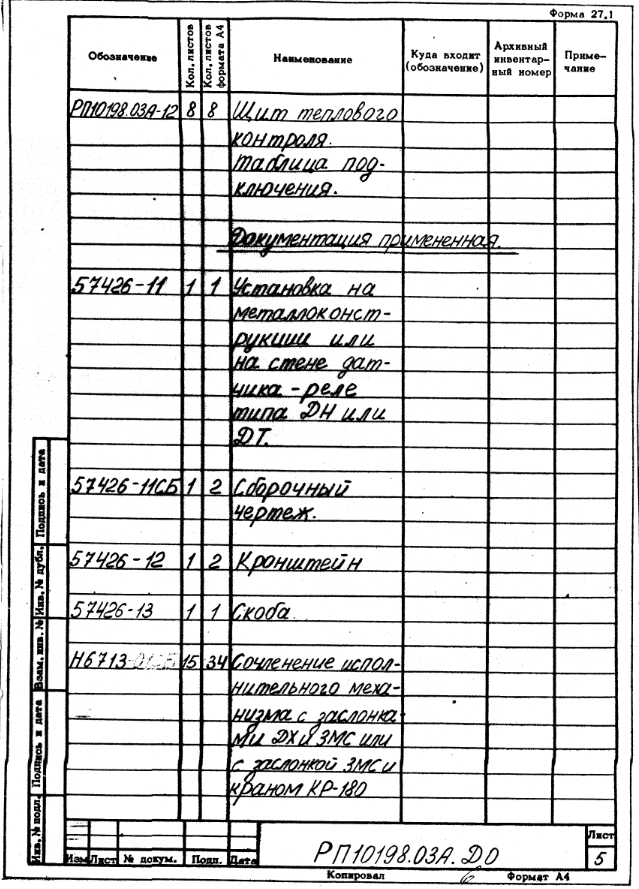 Форма 27.1
Обозначение
Кол. листов
Кол. листов формата А4
Наименование
Куда входит (обозначение)
Архивный инвентар-
ный номер
Приме-
чание
РП10198.03А-12 8 8 Щит теплового
контроля.
Таблица под-
ключения.
Документация примененная.
57426-11 1 1 Установка на
металлоконст-
рукции или
на стене дат-
чика-реле
типа ДН или
ДТ.
57426-11СБ 1 2 Сборочный
чертеж.
57426-12 1 2 Кронштейн
57426-13 1 1 Скоба
Н6713- 15 34 Сочленение испол-
нительного меха-
низма с заслонка-
ми ДХ и ЗМС или
с заслонкой ЗМС и
краном КР-180
Инв. № подл. Подпись и дата Взам. инв. № Инв. № дубл. Подпись и дата
Изм Лист № докум. Подп. Дата
РП10198.03А.ДО
Лист
5
Копировал
6
Формат А4